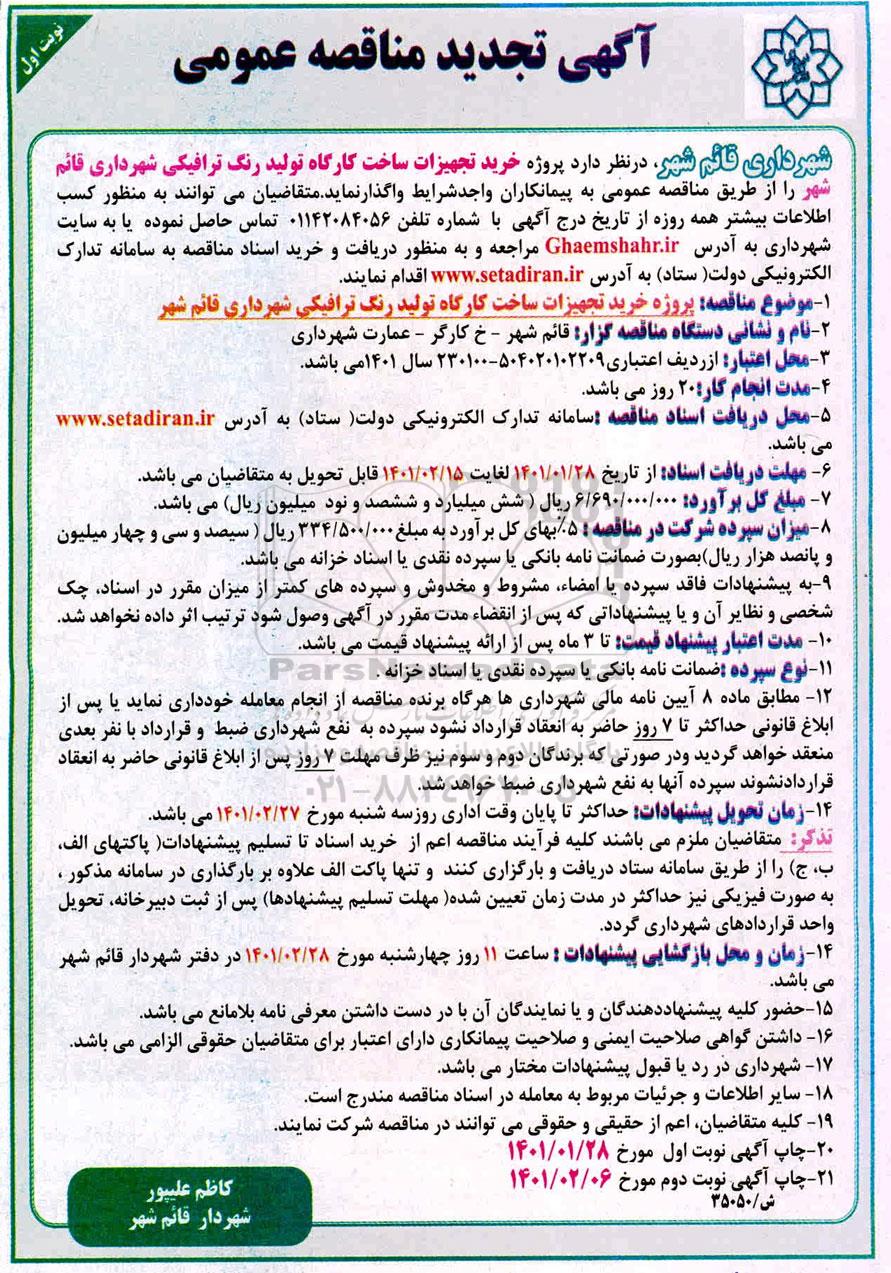 نوبت اول
آگهی تجدید مناقصه عمومی
شهرداری قائم شهر، درنظر دارد پروژه خرید تجهیزات ساخت کارگاه تولید رنگ ترافیکی شهرداری قائم
شهر را از طریق مناقصه عمومی به پیمانکاران واجدشرایط واگذارنماید.متقاضیان می توانند به منظور کسب
اطلاعات بیشتر همه روزه از تاریخ درج آگهی با شماره تلفن ۰۱۱۴۲۰۸۴۰۵۶ تماس حاصل نموده یا به سایت
شهرداری به آدرس Ghaemshahr.ir مراجعه و به منظور دریافت و خرید اسناد مناقصه به سامانه تدارک
الکترونیکی دولت( ستاد) به آدرس www.setadiran.ir اقدام نمایند.
۱-موضوع مناقصه: پروژه خرید تجهیزات ساخت کارگاه تولید رنگ ترافیکی شهرداری قائم شهر
۲-نام و نشانی دستگاه مناقصه گزار: قائم شهر - خ کارگر - عمارت شهرداری
۳-محل اعتبار: ازردیف اعتباری۵۰۴۰۲۰۱۰۲۲۰۹-۲۳۰۱۰۰ سال ۱۴۰۱می باشد.
۴-مدت انجام کار: ۲۰ روز می باشد.
۵-محل دریافت اسناد مناقصه :سامانه تدارک الکترونیکی دولت( ستاد) به آدرس www.setadiran.ir
می باشد.
۶- مهلت دریافت اسناد: از تاریخ ۱۴۰۱/۰۱/۲۸ لغایت ۱۴۰۱/۰۲/۱۵ قابل تحویل به متقاضیان می باشد.
۷- مبلغ کل برآورد: ۶/۶۹۰/۰۰۰/۰۰۰ ریال ( شش میلیارد و ششصد و نود میلیون ریال) می باشد.
۸-میزان سپرده شرکت در مناقصه : ۵٪بهای کل برآورد به مبلغ ۳۳۴/۵۰۰/۰۰۰ ریال ( سیصد و سی و چهار میلیون
و پانصد هزار ریال)بصورت ضمانت نامه بانکی یا سپرده نقدی یا اسناد خزانه می باشد.
۹-به پیشنهادات فاقد سپرده یا امضاء، مشروط و مخدوش و سپرده های کمتر از میزان مقرر در اسناد، چک
شخصی و نظایر آن و یا پیشنهاداتی که پس از انقضاء مدت مقرر در آگهی وصول شود ترتیب اثر داده نخواهد شد.
۱۰- مدت اعتبار پیشنهاد قیمت: تا ۳ ماه پس از ارائه پیشنهاد قیمت می باشد.
۱۱-نوع سپرده :ضمانت نامه بانکی یا سپرده نقدی یا اسناد خزانه .
۱۲- مطابق ماده ۸ آیین نامه مالی شهرداری ها هرگاه برنده مناقصه از انجام معامله خودداری نماید یا پس از
ابلاغ قانونی حداکثر تا ۷ روز حاضر به انعقاد قرارداد نشود سپرده به نفع شهرداری ضبط و قرارداد با نفر بعدی
منعقد خواهد گردید ودر صورتی که برندگان دوم و سوم نیز ظرف مهلت ۷ روز پس از ابلاغ قانونی حاضر به انعقاد
قراردادنشوند سپرده آنها به نفع شهرداری ضبط خواهد شد.
۱۴-زمان تحویل پیشنهادات: حداکثر تا پایان وقت اداری روزسه شنبه مورخ ۱۴۰۱/۰۲/۲۷ می باشد.
تذکر: متقاضیان ملزم می باشند کلیه فرآیند مناقصه اعم از خرید اسناد تا تسلیم پیشنهادات( پاکتهای الف،
ب، ج) را از طریق سامانه ستاد دریافت و بارگزاری کنند و تنها پاکت الف علاوه بر بارگذاری در سامانه مذکور ،
به صورت فیزیکی نیز حداکثر در مدت زمان تعیین شده( مهلت تسلیم پیشنهادها) پس از ثبت دبیرخانه، تحویل
واحد قراردادهای شهرداری گردد.
۱۴-زمان و محل بازگشایی پیشنهادات : ساعت ۱۱ روز چهارشنبه مورخ ۱۴۰۱/۰۲/۲۸ در دفتر شهردار قائم شهر
می باشد.
۱۵-حضور کلیه پیشنهاددهندگان و یا نمایندگان آن با در دست داشتن معرفی نامه بلامانع می باشد.
۱۶- داشتن گواهی صلاحیت ایمنی و صلاحیت پیمانکاری دارای اعتبار برای متقاضیان حقوقی الزامی می باشد.
۱۷- شهرداری در رد یا قبول پیشنهادات مختار می باشد.
۱۸- سایر اطلاعات و جزئیات مربوط به معامله در اسناد مناقصه مندرج است.
۱۹- کلیه متقاضیان، اعم از حقیقی و حقوقی می توانند در مناقصه شرکت نمایند.
۲۰-چاپ آگهی نوبت اول مورخ ۱۴۰۱/۰۱/۲۸
۲۱-چاپ آگهی نوبت دوم مورخ ۱۴۰۱/۰۲/۰۶
ش/۳۵۰۵۰
کاظم علیپور
شهردار قائم شهر
ParsNamadData
۰۲۱-۸۸۳۴۹۶۷۰